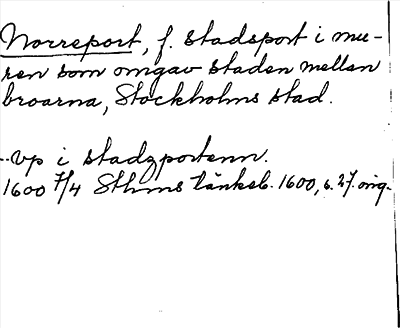 Norreport, f. stadsport i mu-
ren som omgav staden mellan
broarna, Stockholms stad.
..vp i stadzportenn.
1600 7/4 Sthms tänkeb. 1600, s. 27. orig.